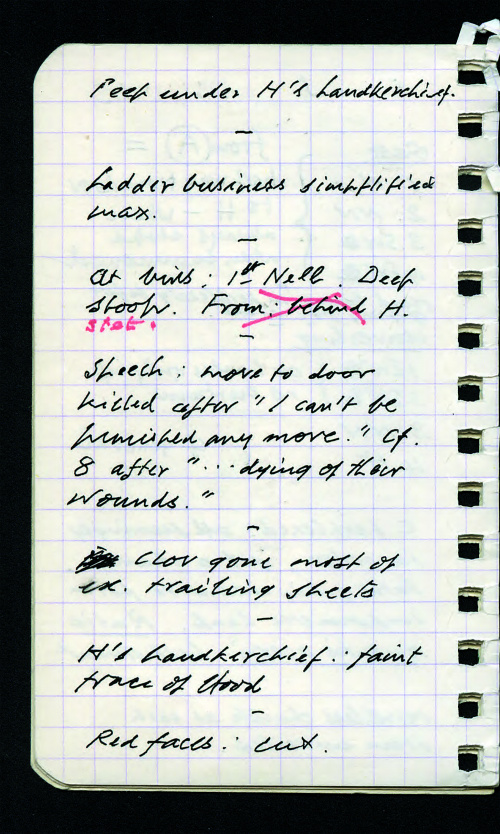 Peep under H's handkerchief.
—
Ladder business simplified
max.
—
At bins: 1st Nell. Deep
stoops. From: behind H.
stet.
—
Speech: move to door
killed after "I can't be
punished any more." Cf.
8 after "... dying of their
wounds."
—
Clov gone most of
ex. trailing sheets
—
H's handkerchief: faint
trace of blood
—
Red faces: cut.